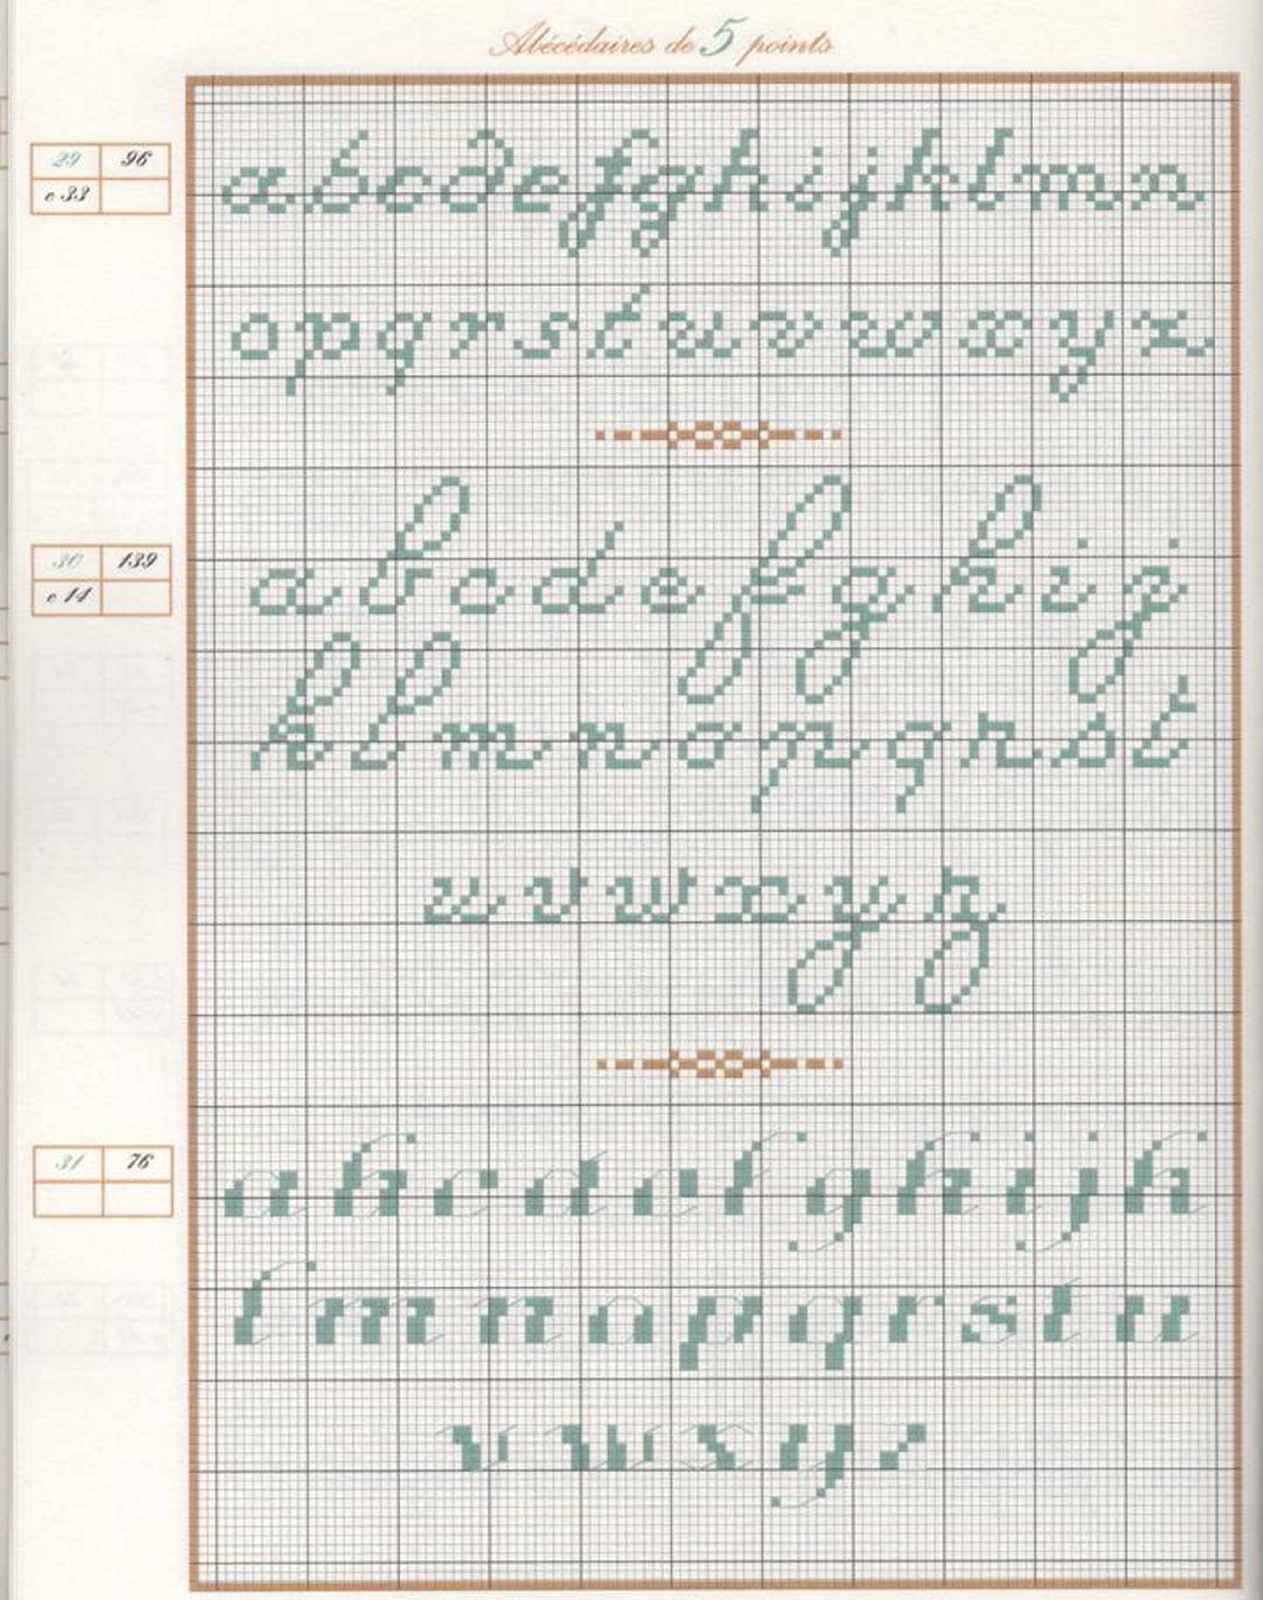 Abécédaires de 5 points
29 96
c 33
a b c d e f g h i j k l m n
o p q r s t u v w x y z
30 139
c 14
a b c d e f g h i j
k l m n o p q r s t
u v w x y z
31 76
a b c d e f g h i j k
l m n o p q r s t u
v w x y z